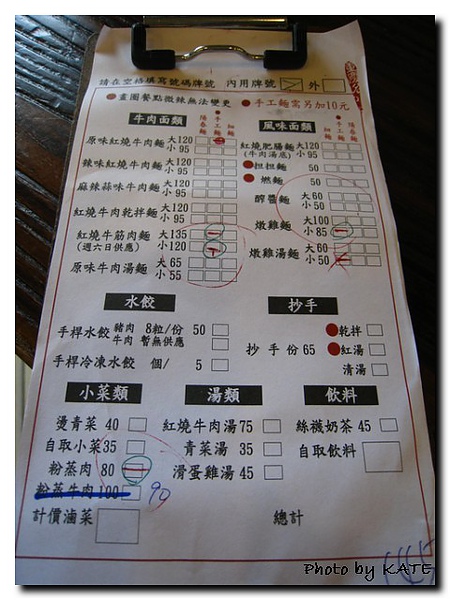 請在空格填寫號碼牌號 內用牌號 外
●畫圈餐點微辣無法變更 ●手工麵需另加10元
牛肉面類 陽春麵 手工麵 細麵
原味紅燒牛肉麵 大120 小95
辣味紅燒牛肉麵 大120 小95
麻辣蒜味牛肉麵 大120 小95
紅燒牛肉乾拌麵 大120 小95
紅燒牛筋肉麵 大135
(週六日供應) 小120
原味牛肉湯麵 大65 小55
風味面類 細麵 手工麵 陽春麵
紅燒肥腸麵 大120
(牛肉湯底) 小95
●担担麵 50
●燃麵 50
醡醬麵 大60 小50
燉雞麵 大100 小85
燉雞湯麵 大60 小50
水餃
手桿水餃 豬肉 8粒/份 50
牛肉 暫無供應
手桿冷凍水餃 個/ 5
抄手
抄手 份65 ●乾拌
●紅湯
清湯
小菜類
燙青菜 40
自取小菜35
粉蒸肉 80
粉蒸牛肉100 90
計價滷菜
湯類
紅燒牛肉湯75
青菜湯 35
滑蛋雞湯45
飲料
絲襪奶茶 45
自取飲料
總計
Photo by KATE